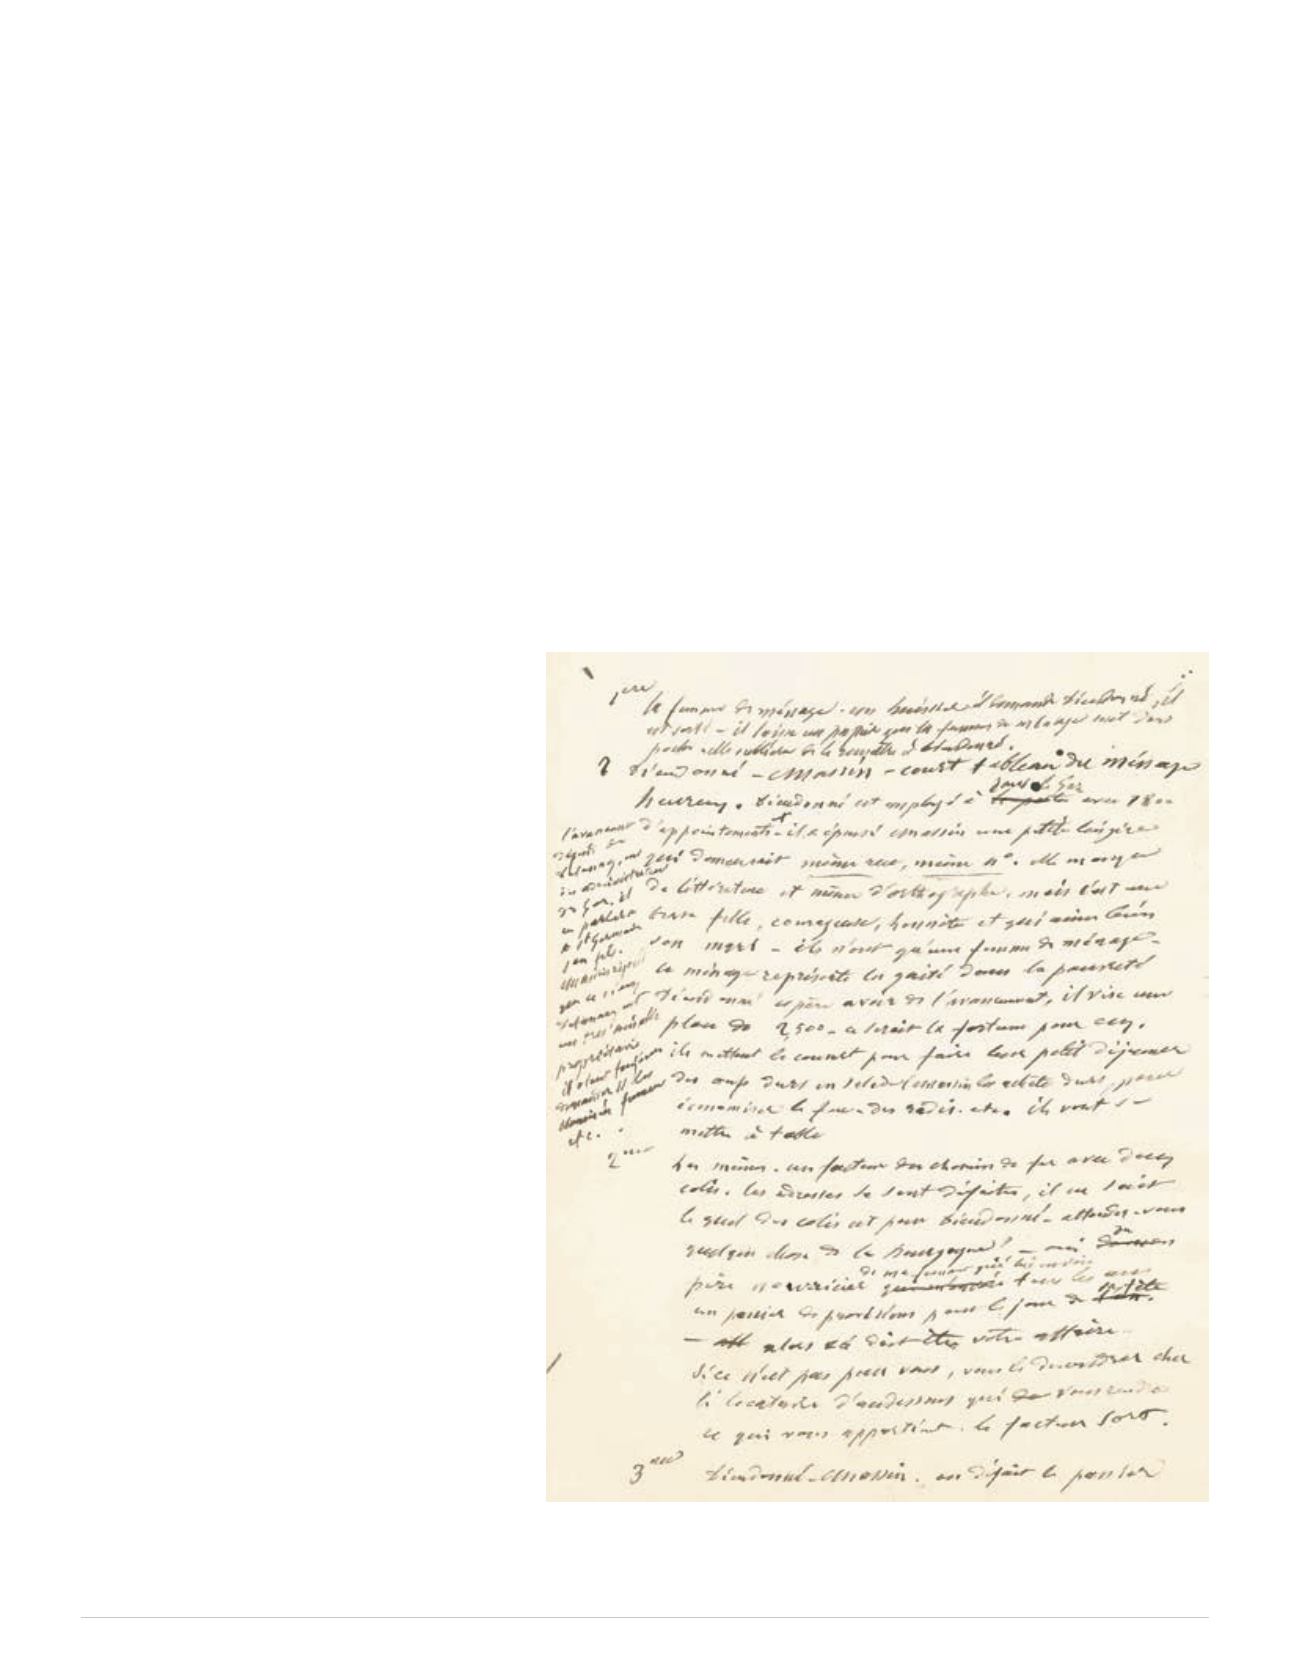 1ère
la femme de ménage. un huissier demande Dieudonné, il
est sorti - il laisse un papier que la femme de ménage met dans
poche - elle oublie de le remettre à Dieudonné.
2 Dieudonné - Massin - court tableau du ménage
heureux. Dieudonné est employé à le gaz avec 1800
d'appointements - il a épousé Massin une petite lingère
qui demeurait même rue, même n°. Elle manque
de littérature et même d'orthographe. mais c'est une
brave fille, courageuse, honnête et qui aime bien
son mari - ils n'ont qu'une femme de ménage -
ce ménage représente la gaité dans la pauvreté
Dieudonné espère avoir de l'avancement, il vise une
place de 2,500 - ce serait la fortune pour eux.
ils mettent le couvert pour faire leur petit déjeuner
des œufs durs en salade (Massin les achète durs, pour
économiser le feu - des radis. etc. ils vont se
mettre à table
l'avancement
propriétaire
etc.
2me
Les mêmes. un facteur du chemin de fer avec deux
colis. les adresses se sont défaites, il ne sait
lequel des colis est pour Dieudonné - attendez-vous
quelque chose de la Bourgogne? - oui du
de ma femme qui lui envoie
père nourricier tous les ans
un panier de provisions pour le jour de sa fête
- alors ça doit être votre affaire
si ce n'est pas pour vous, vous le descendrez chez
le locataire d'au dessous qui vous rendra
ce qui vous appartient. le facteur sort.
3me
Dieudonné - Massin. on défait le panier